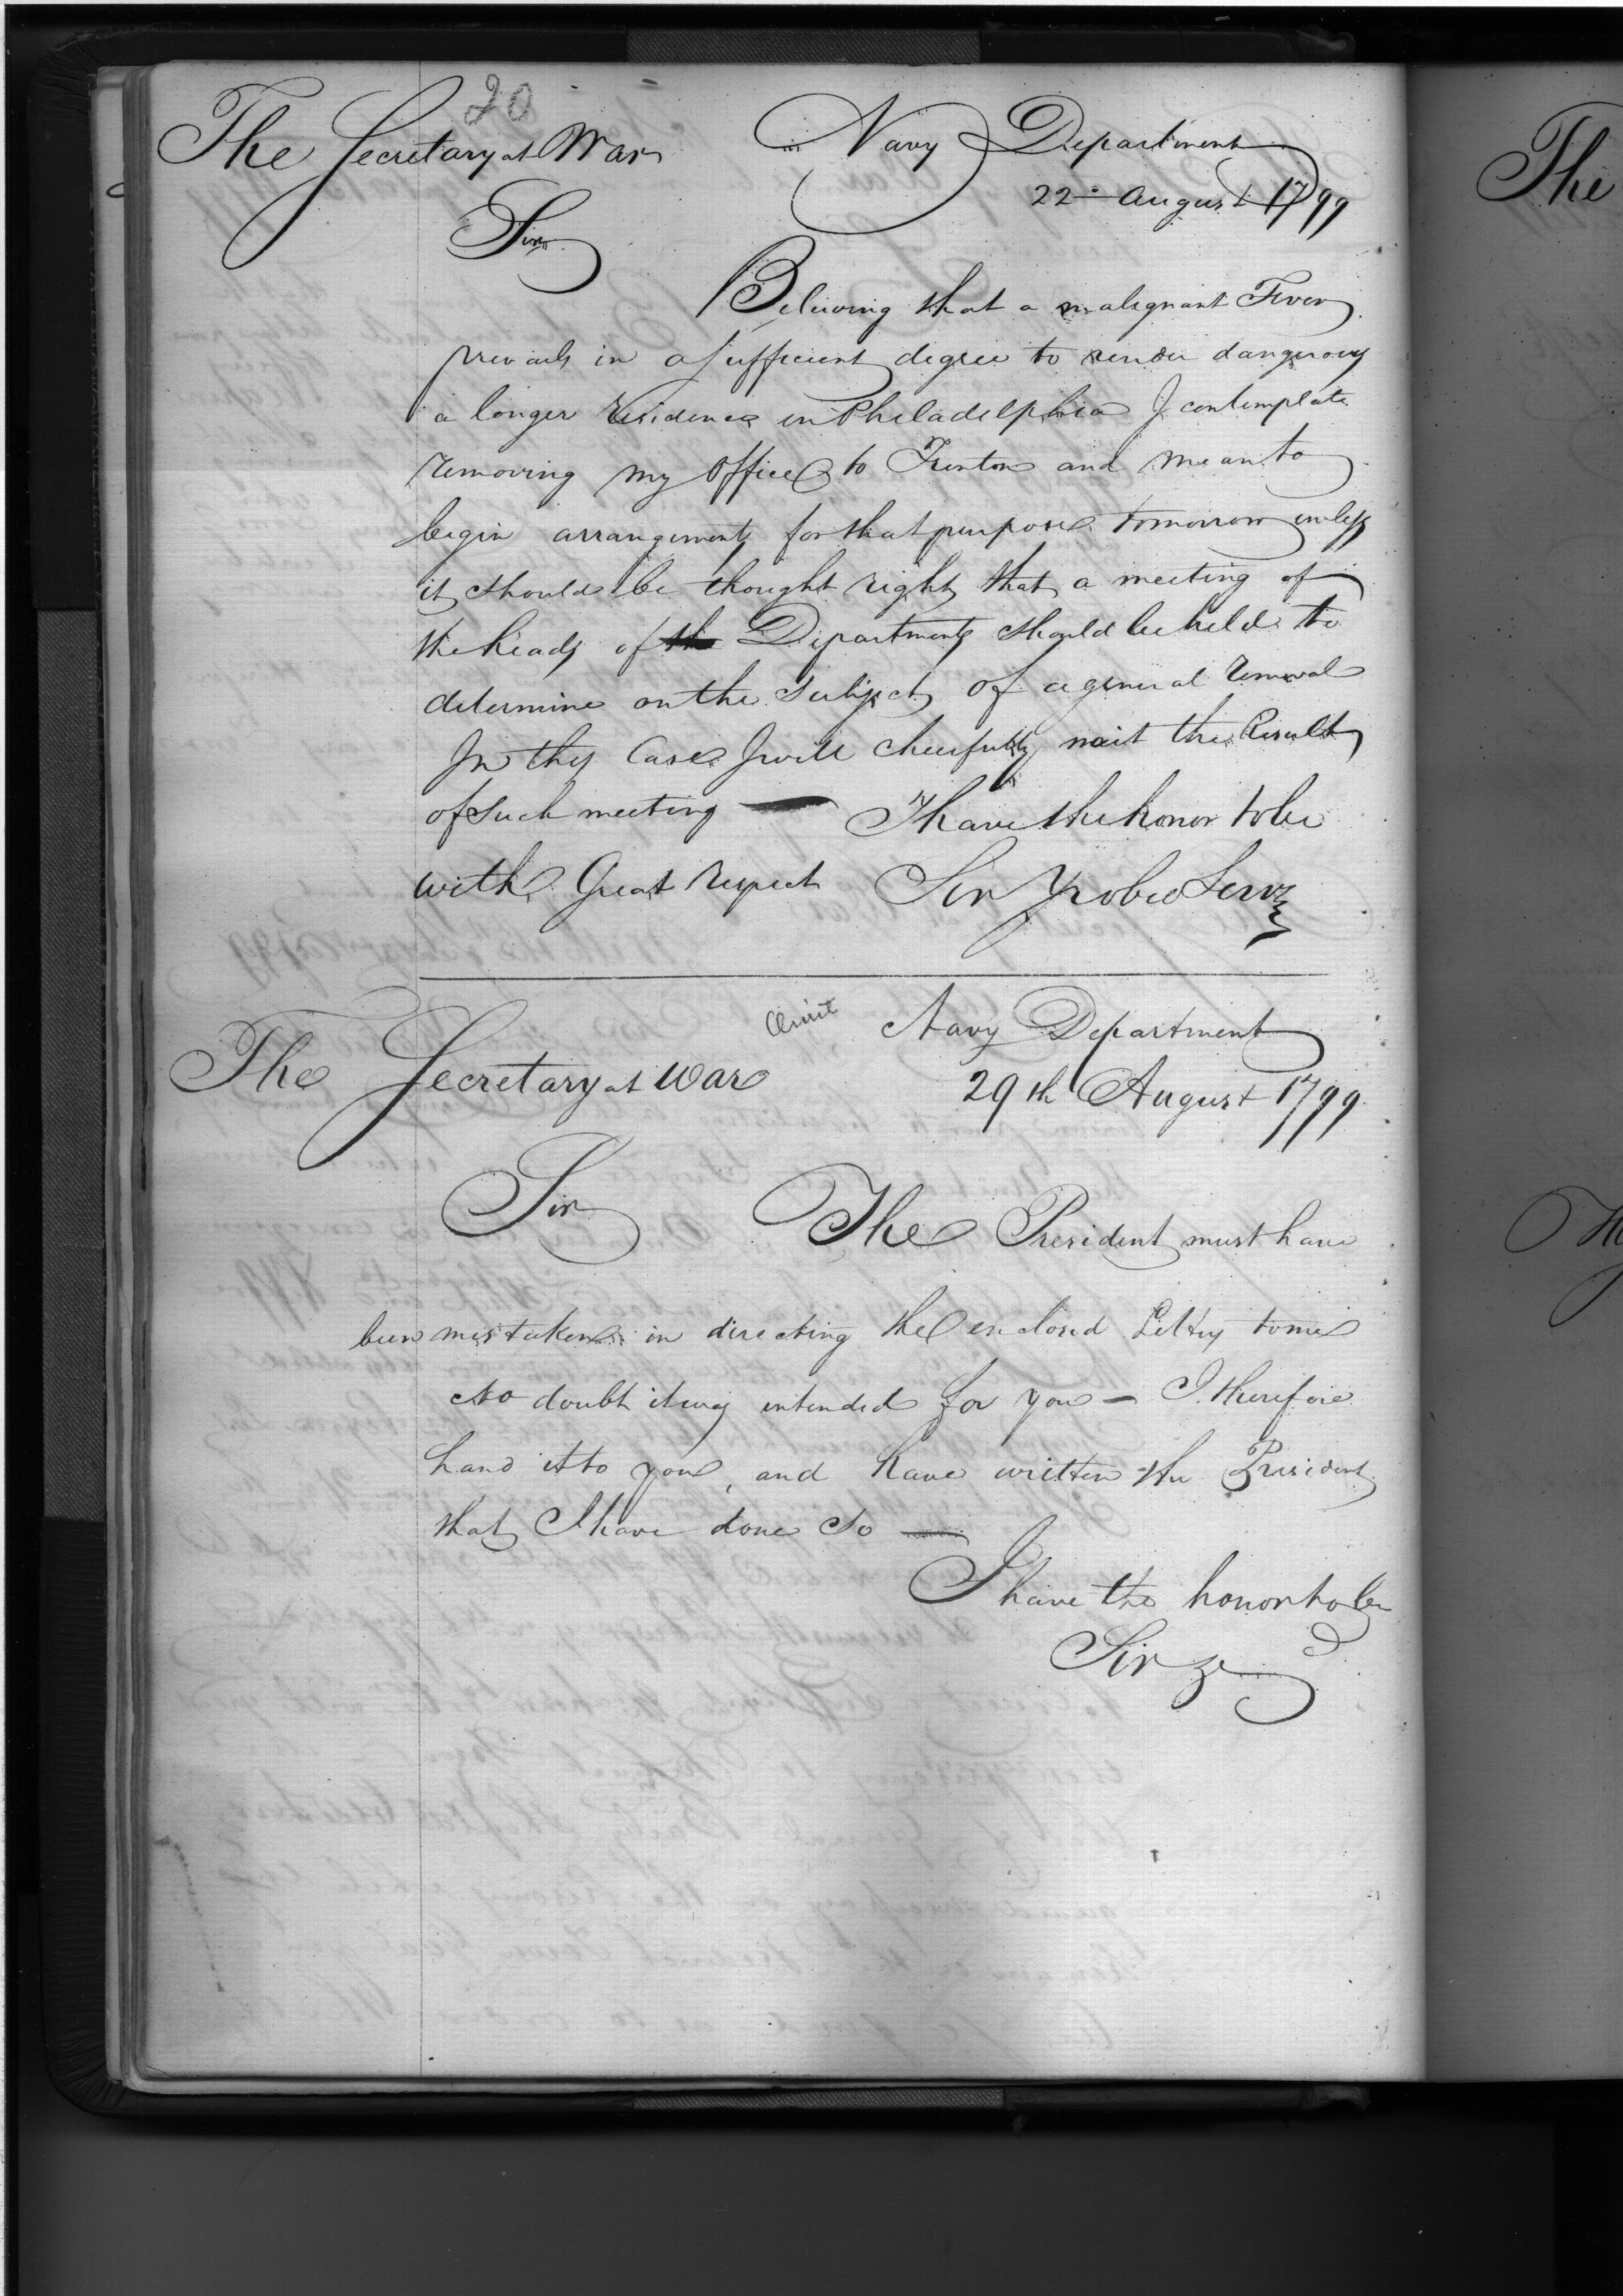 20
The Secretary at War
Navy Department
22d August 1799
Sir
Believing that a malignant Fever
prevails in a sufficient degree to render dangerous
a longer residence in Philadelphia I contemplate
removing my Office to Trenton and mean to
begin arrangements for that purpose tomorrow unless
it should be thought right that a meeting of
the heads of the Departments should be held to
determine on the subject of a general removal
In this Case I will cheerfully wait the Result
of such meeting — I have the honor to be
with Great respect Sir Yr obed Serv
Omit
Navy Department
The Secretary at War
29th August 1799
Sir The President must have
been mistaken in directing the enclosed Letter to me
No doubt it was intended for you — I therefore
hand it to you, and have written the President
that I have done so —
I have the honor to be
Sir &c
The